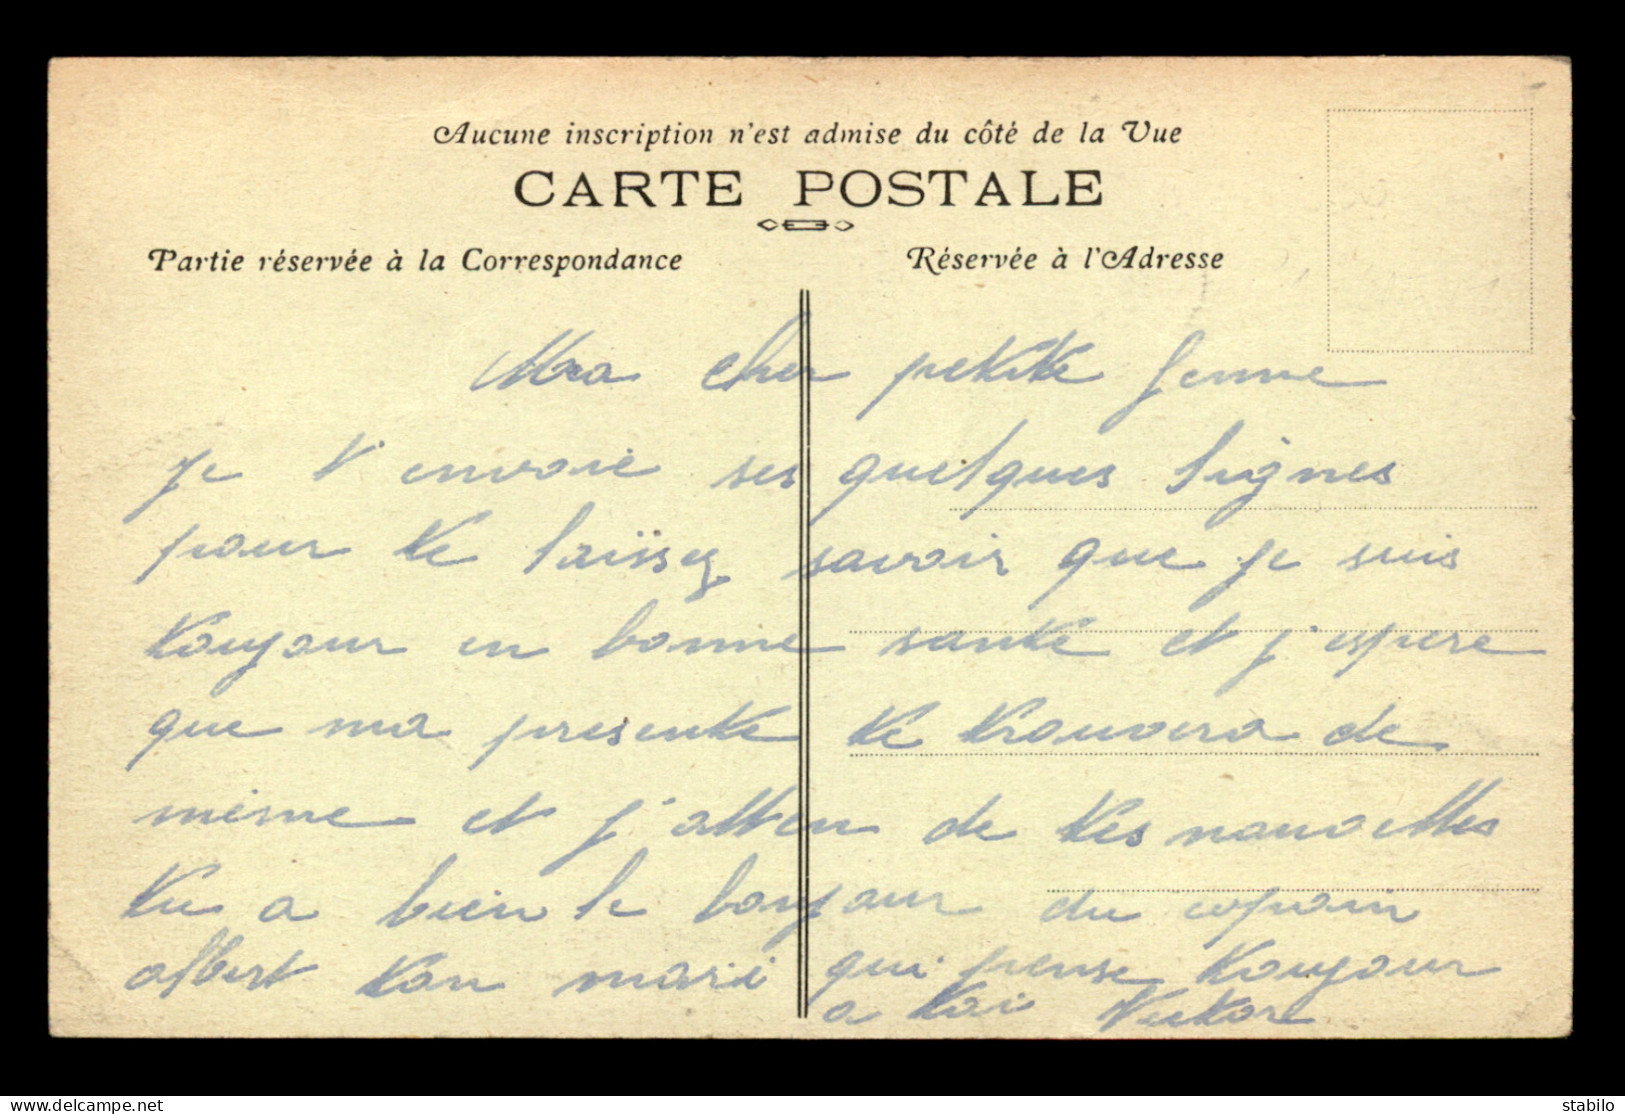 Aucune inscription n'est admise du côté de la Vue
CARTE POSTALE
Partie réservée à la Correspondance
Réservée à l'Adresse
Ma cher petite femme
je t'envoie ses quelques lignes
pour te laïssez savoir que je suis
toujour en bonne sante et j'espere
que ma presente te trouvera de
même et j'atten de tes nouvelles
tu a bien le bonjour du copain
albert ton mari qui pense toujour
a toi Victor
stabilo